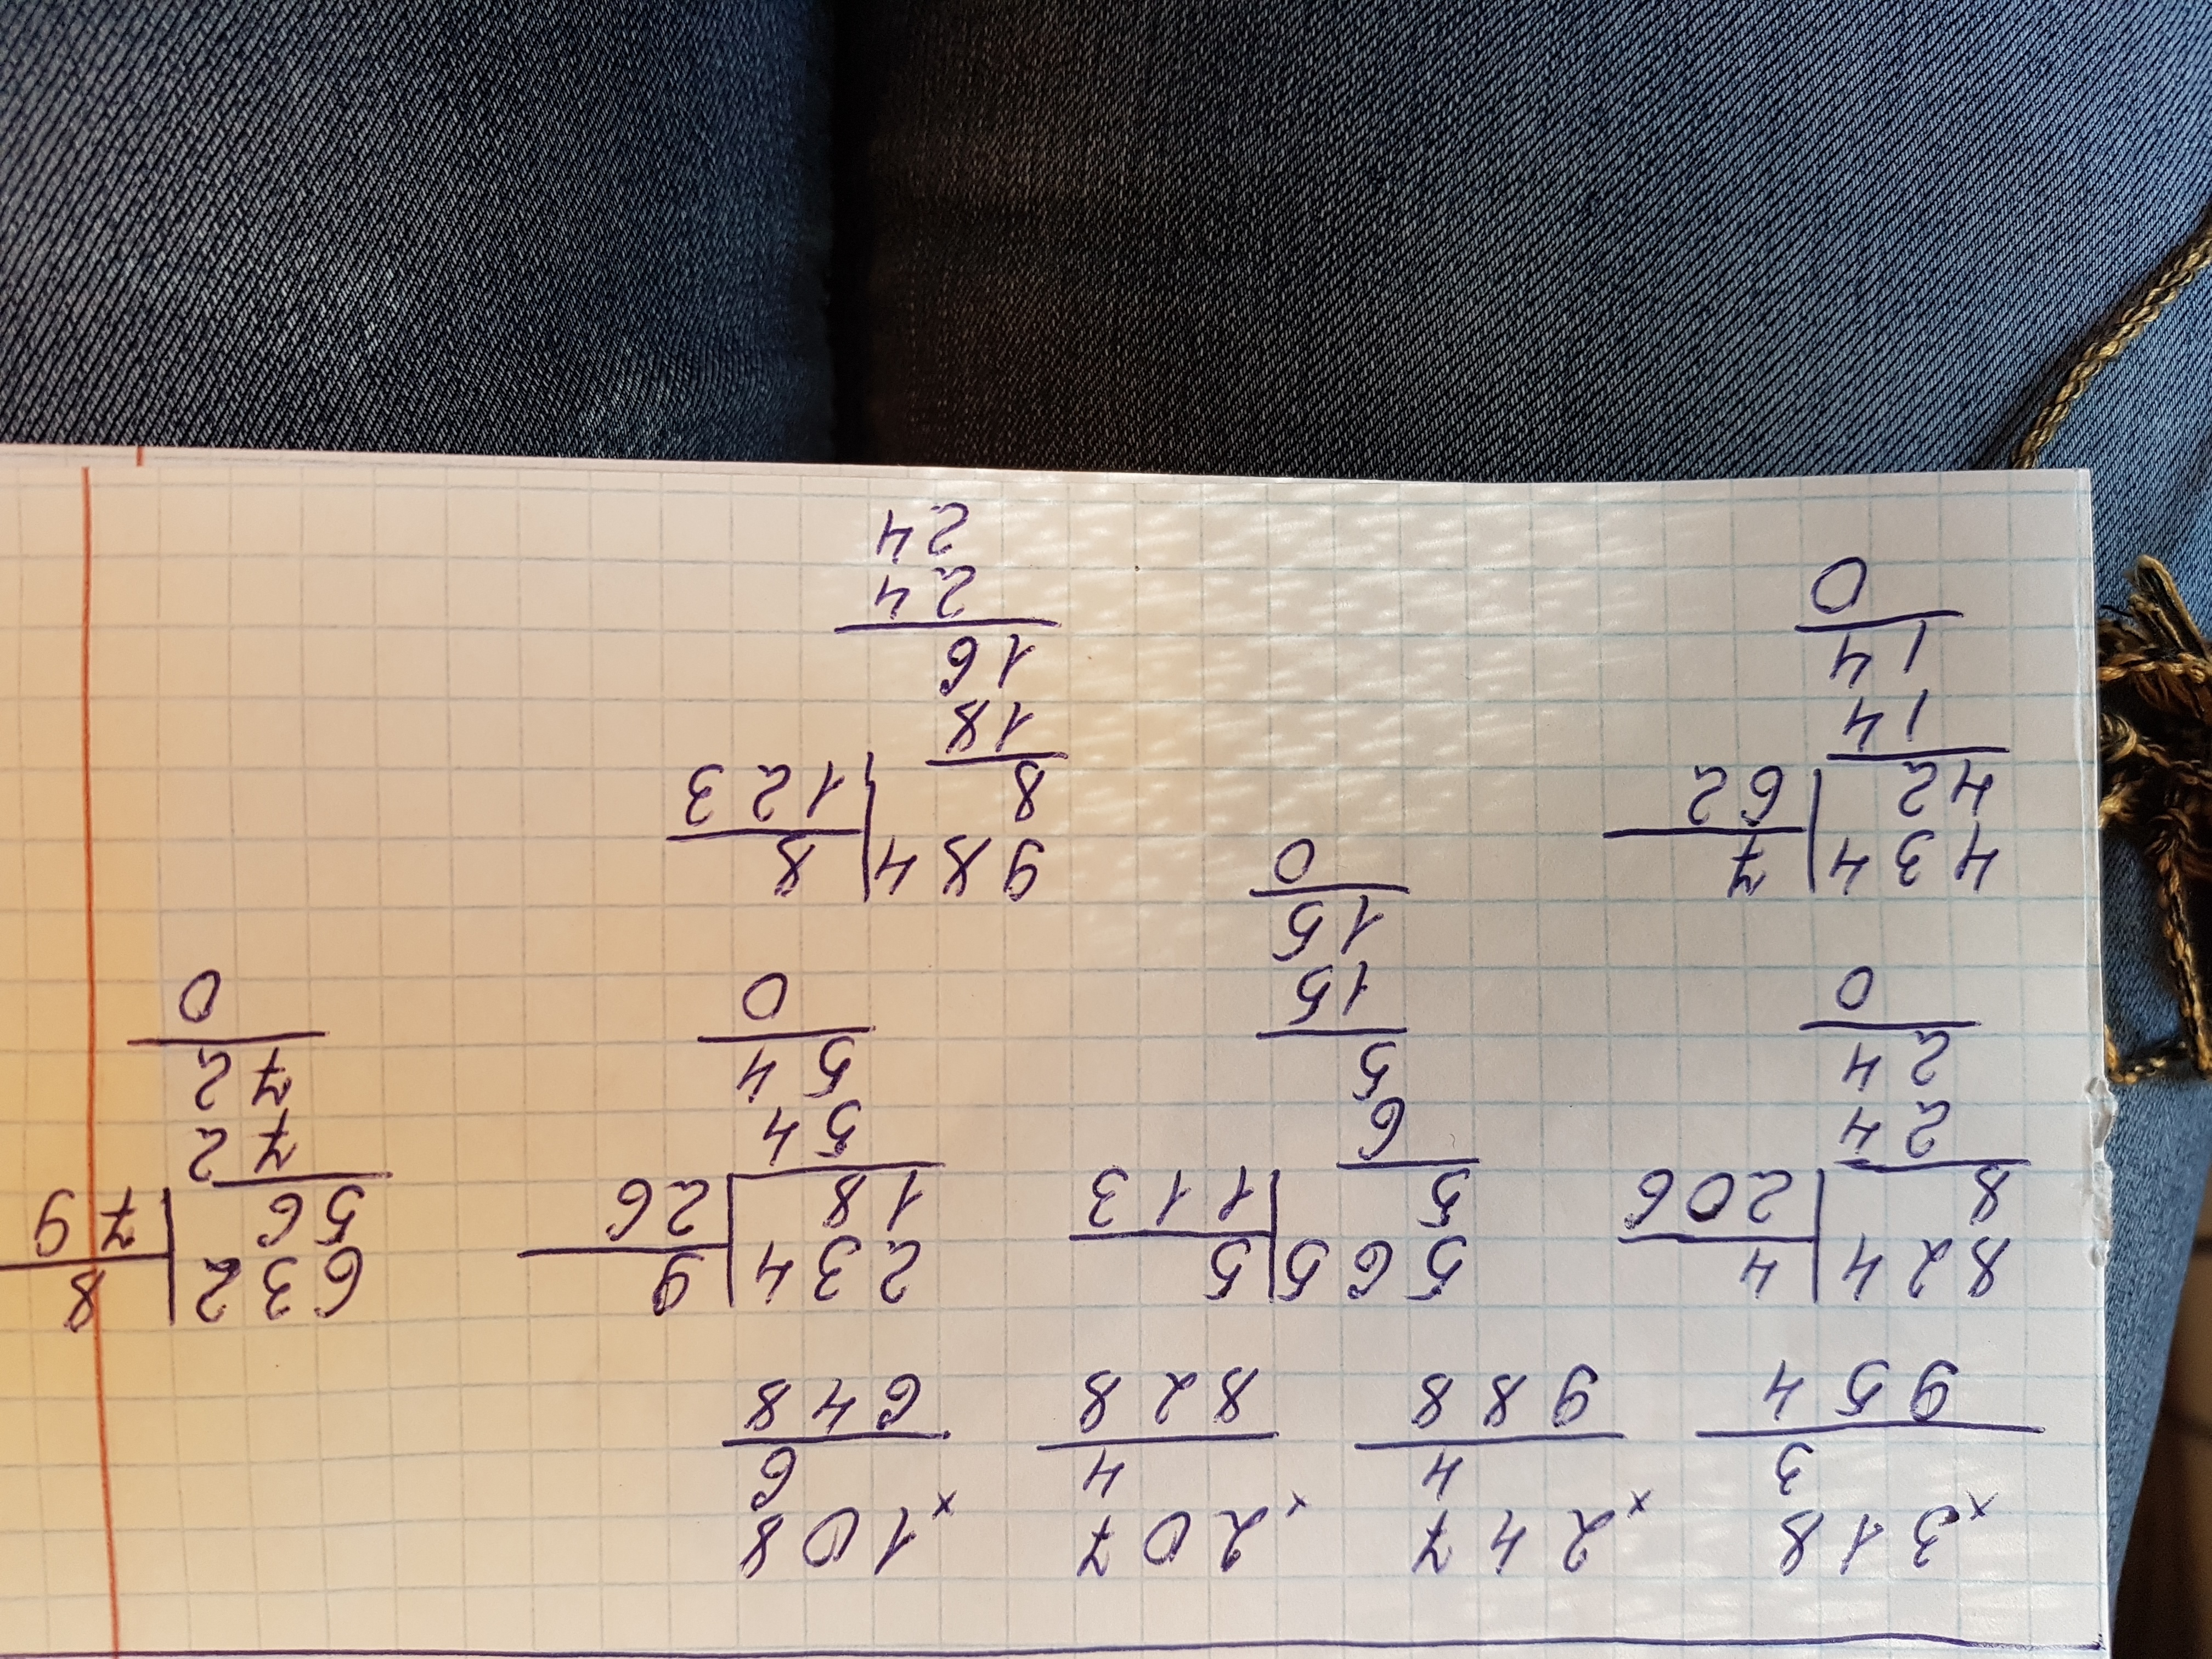 × 318 × 247 × 207 × 108
3 4 4 6
954 988 828 648
824 | 4 565 | 5 234 | 9 632 | 8
8 | 206 5 | 113 18 | 26 56 | 79
24 6 54 72
24 5 54 72
0 15 0 0
15
0
434 | 7 984 | 8
42 | 62 8 | 123
14 18
14 16
0 24
24